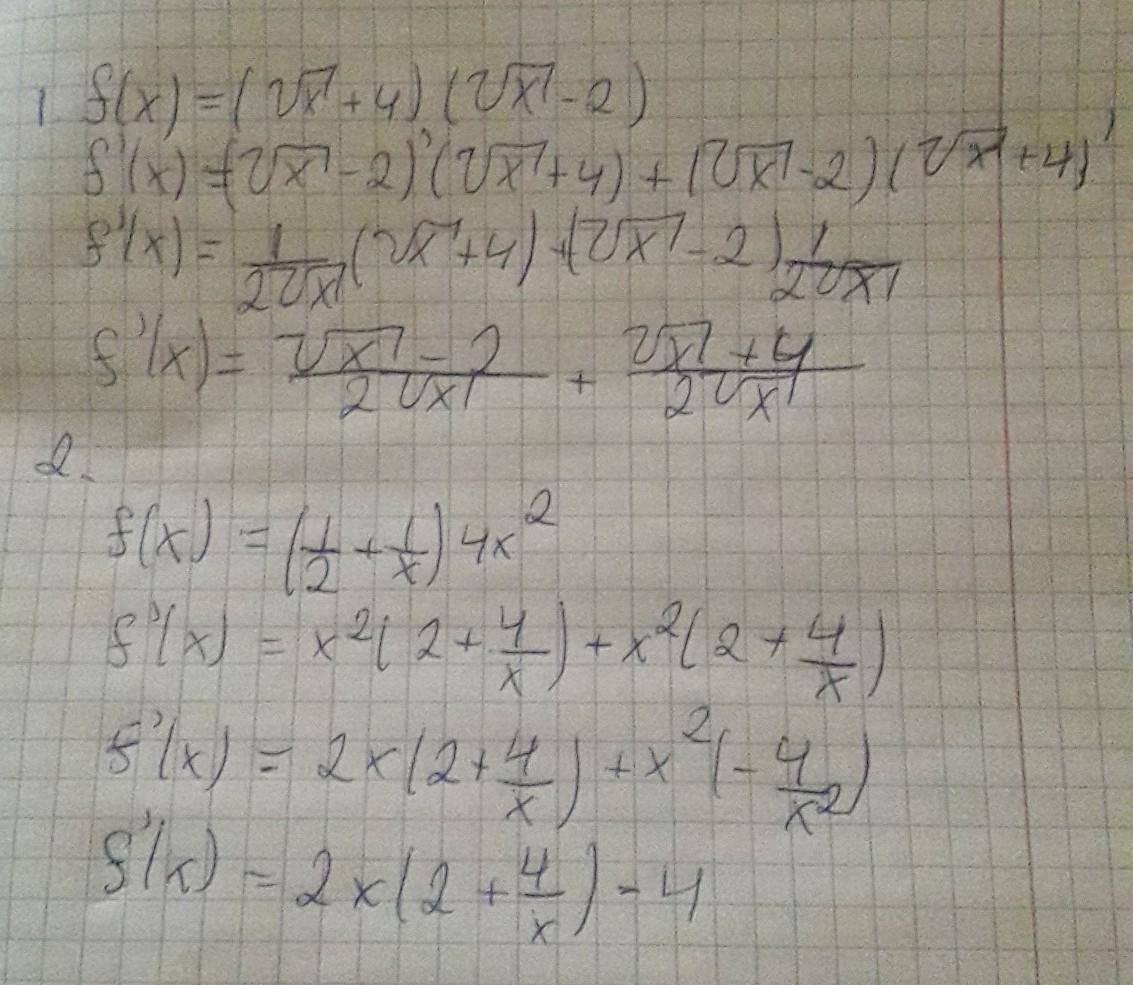 1. f(x) = (√x + 4) (√x - 2)
f'(x) = (√x - 2)' (√x + 4) + (√x - 2) (√x + 4)'
f'(x) = 1/(2√x) (√x + 4) + (√x - 2) 1/(2√x)
f'(x) = (√x - 2)/(2√x) + (√x + 4)/(2√x)
2.
f(x) = (1/2 + 1/x) 4x²
f'(x) = x² (2 + 4/x) + x² (2 + 4/x)
f'(x) = 2x (2 + 4/x) + x² (- 4/x²)
f'(x) = 2x (2 + 4/x) - 4